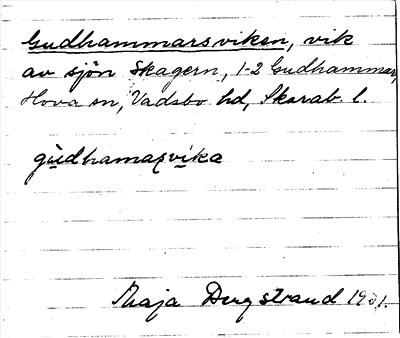 Gudhammarsviken, vik
av sjön Skagern, 1-2 Gudhammar,
Hova sn, Vadsbo hd, Skarab. l.
gudhamaʂvika
Maja Bergstrand 1931.